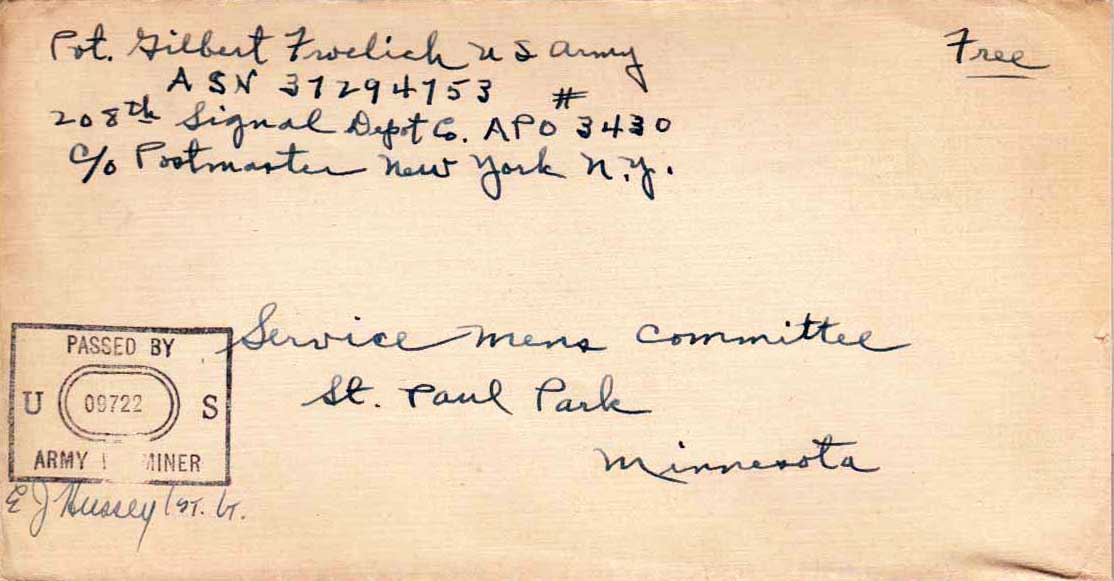 Pvt. Gilbert Froelich U S Army
Free
ASN 37294753
208th Signal Depot Co. APO #3430
c/o Postmaster New York N.Y.
Service mens Committee
St. Paul Park
Minnesota
PASSED BY
U 09722 S
ARMY E MINER
E J Hussey 1st. Lt.